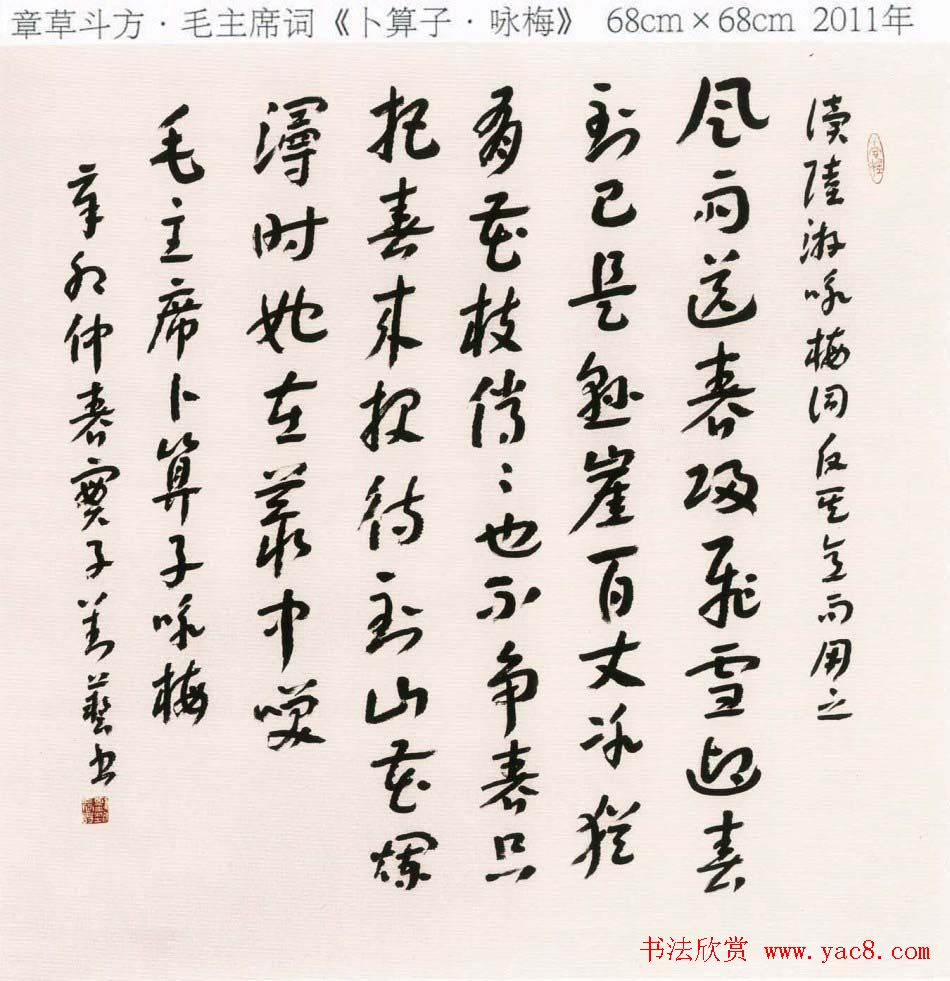 章草斗方·毛主席词《卜算子·咏梅》 68cm×68cm 2011年
读陸游咏梅词反其意而用之
风雨送春歸飛雪迎春
到已是懸崖百丈冰猶
有花枝俏〻也不争春只
把春来报待到山花爛
漫时她在叢中笑
毛主席卜算子咏梅
辛卯仲春 子 藝书
书法欣赏 www.yac8.com